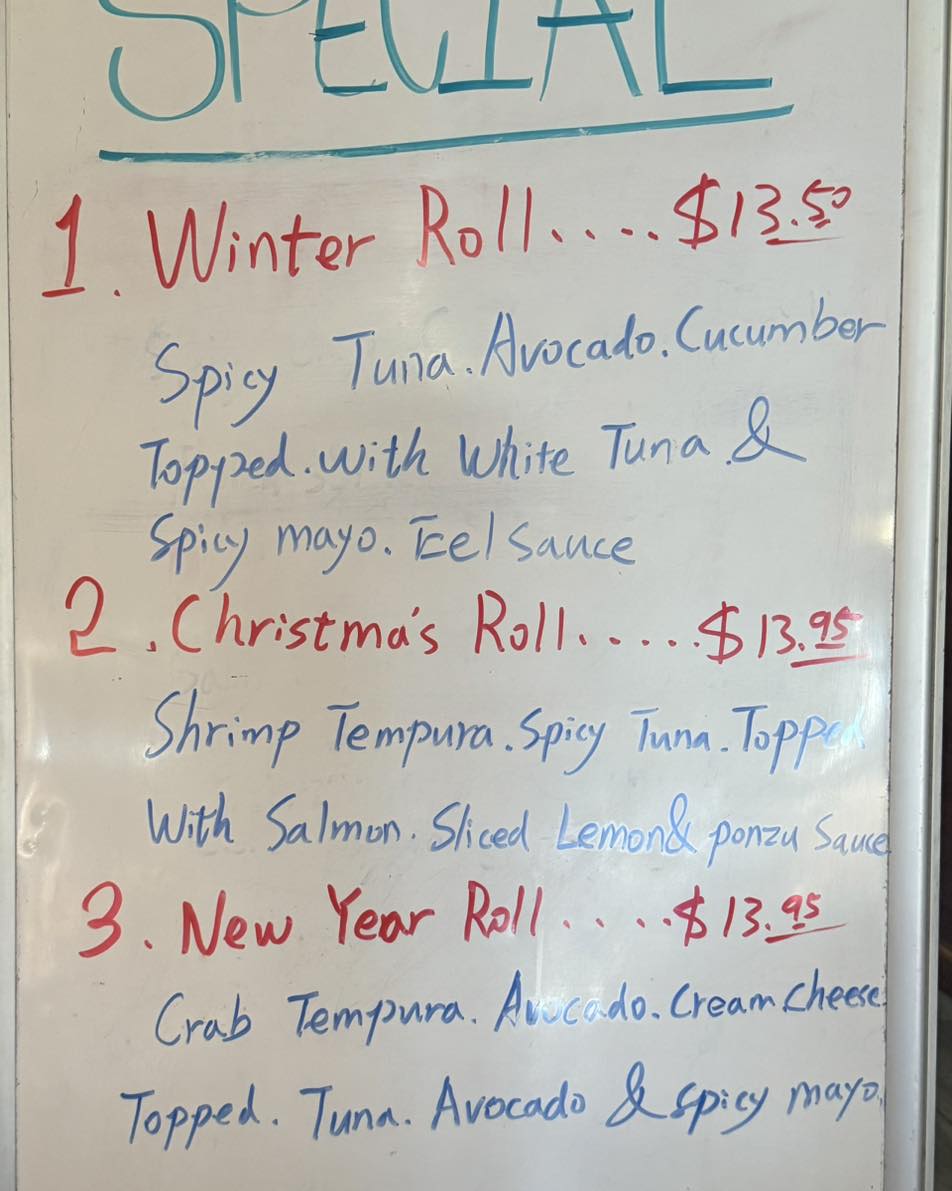 SPECIAL
1. Winter Roll.... $13.50
Spicy Tuna. Avocado. Cucumber
Topped. with White Tuna &
Spicy mayo. Eel Sauce
2. Christma's Roll..... $13.95
Shrimp Tempura. Spicy Tuna. Topped
With Salmon. Sliced Lemon & ponzu Sauce
3. New Year Roll.....$13.95
Crab Tempura. Avocado. Cream Cheese.
Topped. Tuna. Avocado & spicy mayo.